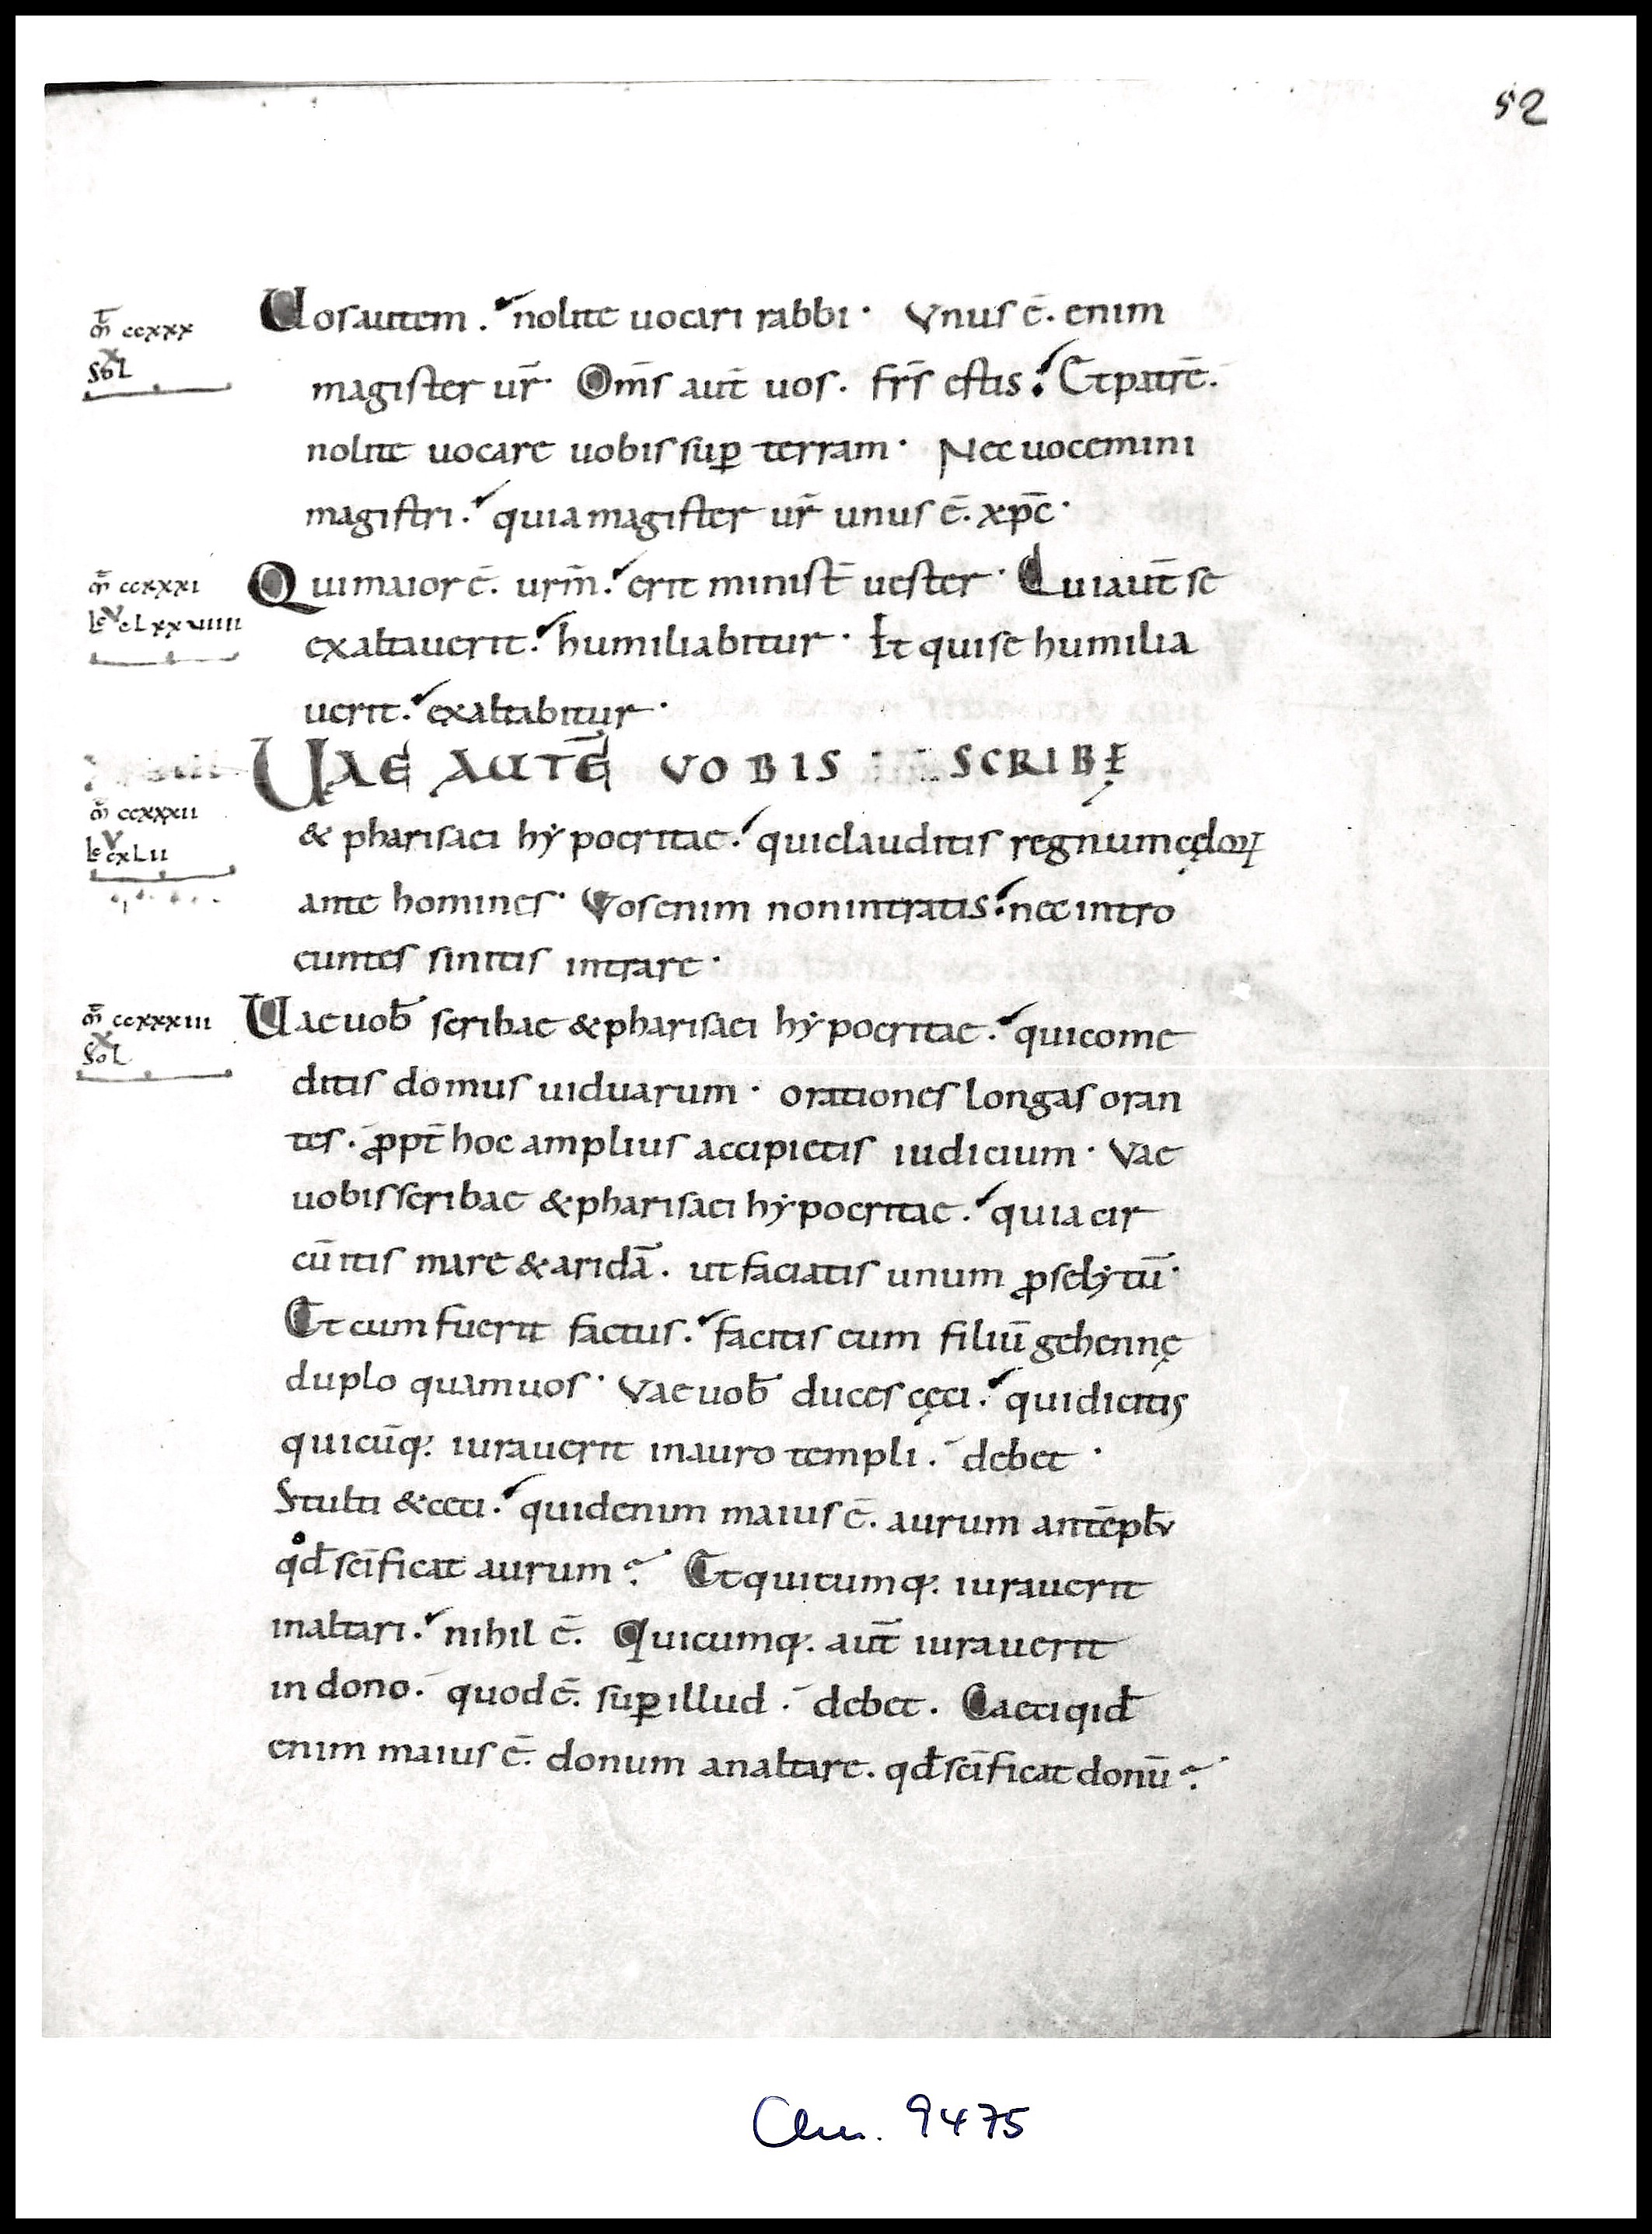 52
mt̄ ccxxx
x
sol
Uos autem. nolite uocari rabbi· Vnus ē. enim
magister ur̄· Om̄s aut̄ uos. fr̄s estis. Et patrē.
nolite uocare uobis suꝑ terram· Nec uocemini
magistri. quia magister ur̄ unus ē. xp̄c·
mt̄ ccxxxi
v
lc clxxviiii
Qui maior ē. urm̄. erit minist̄ uester· Qui aut̄ se
exaltauerit. humiliabitur· Et qui se humilia
uerit. exaltabitur·
UAE AUTĒ VOBIS SCRIBĘ
mt̄ ccxxxii
v
lc cxlii
& pharisaei hẏpocritae. qui clauditis regnum cęloꝝ
ante homines· Vos enim non intratis. nec intro
euntes sinitis intrare·
mt̄ ccxxxiii
x
sol
Uae uob̄ scribae & pharisaei hẏpocritae. qui come
ditis domus uiduarum· orationes longas oran
tes. ꝓpt̄ hoc amplius accipietis iudicium· Vae
uobis scribae & pharisaei hẏpocritae. quia cir
cūitis mare & aridā. ut faciatis unum ꝓselẏtū·
Et cum fuerit factus. facitis eum filiū gehennę
duplo quam uos· Vae uob̄ duces cęci. qui dicitis
quicūq; iurauerit in auro templi. debet·
Stulti & ceci. quid enim maius ē. aurum an tēplū
qd̄ sc̄ificat aurum? Et quicumq; iurauerit
in altari. nihil ē. Quicumq; aut̄ iurauerit
in dono. quod ē. suꝑ illud. debet. Caeci qid̄
enim maius ē. donum an altare. qd̄ sc̄ificat donū?
Clm. 9475